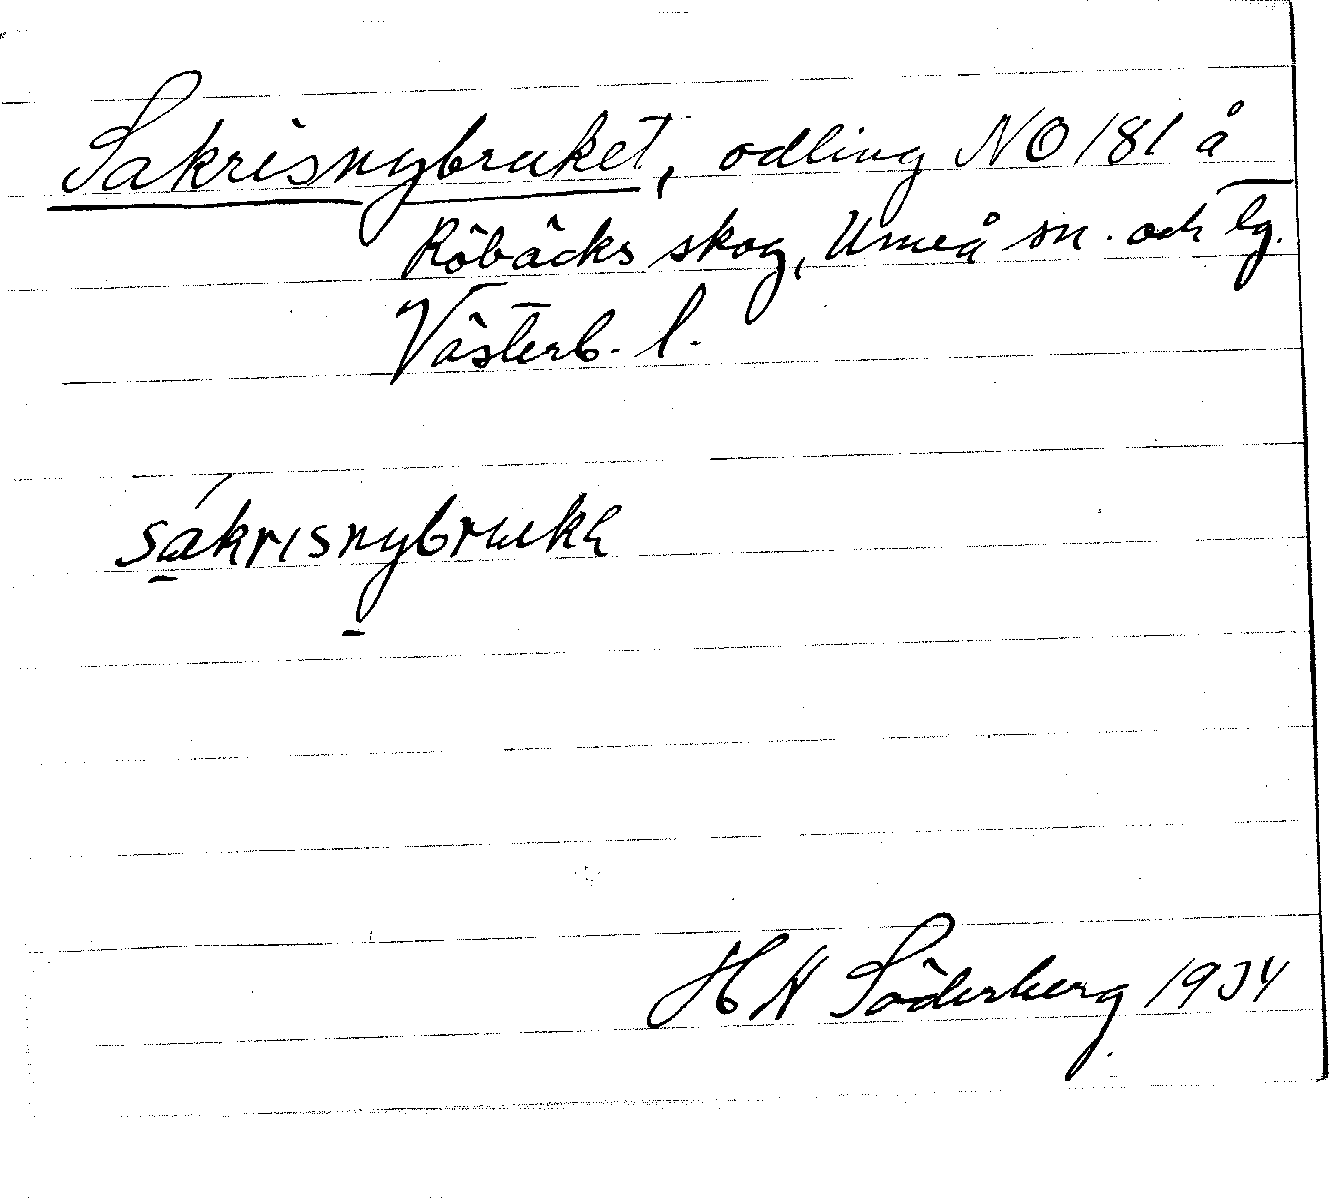 Sakrisnybruket, odling NO 181 å
Röbäcks skog, Umeå sn. och lg.
Västerb. l.
sákrisnybruke
H N Söderberg 1934